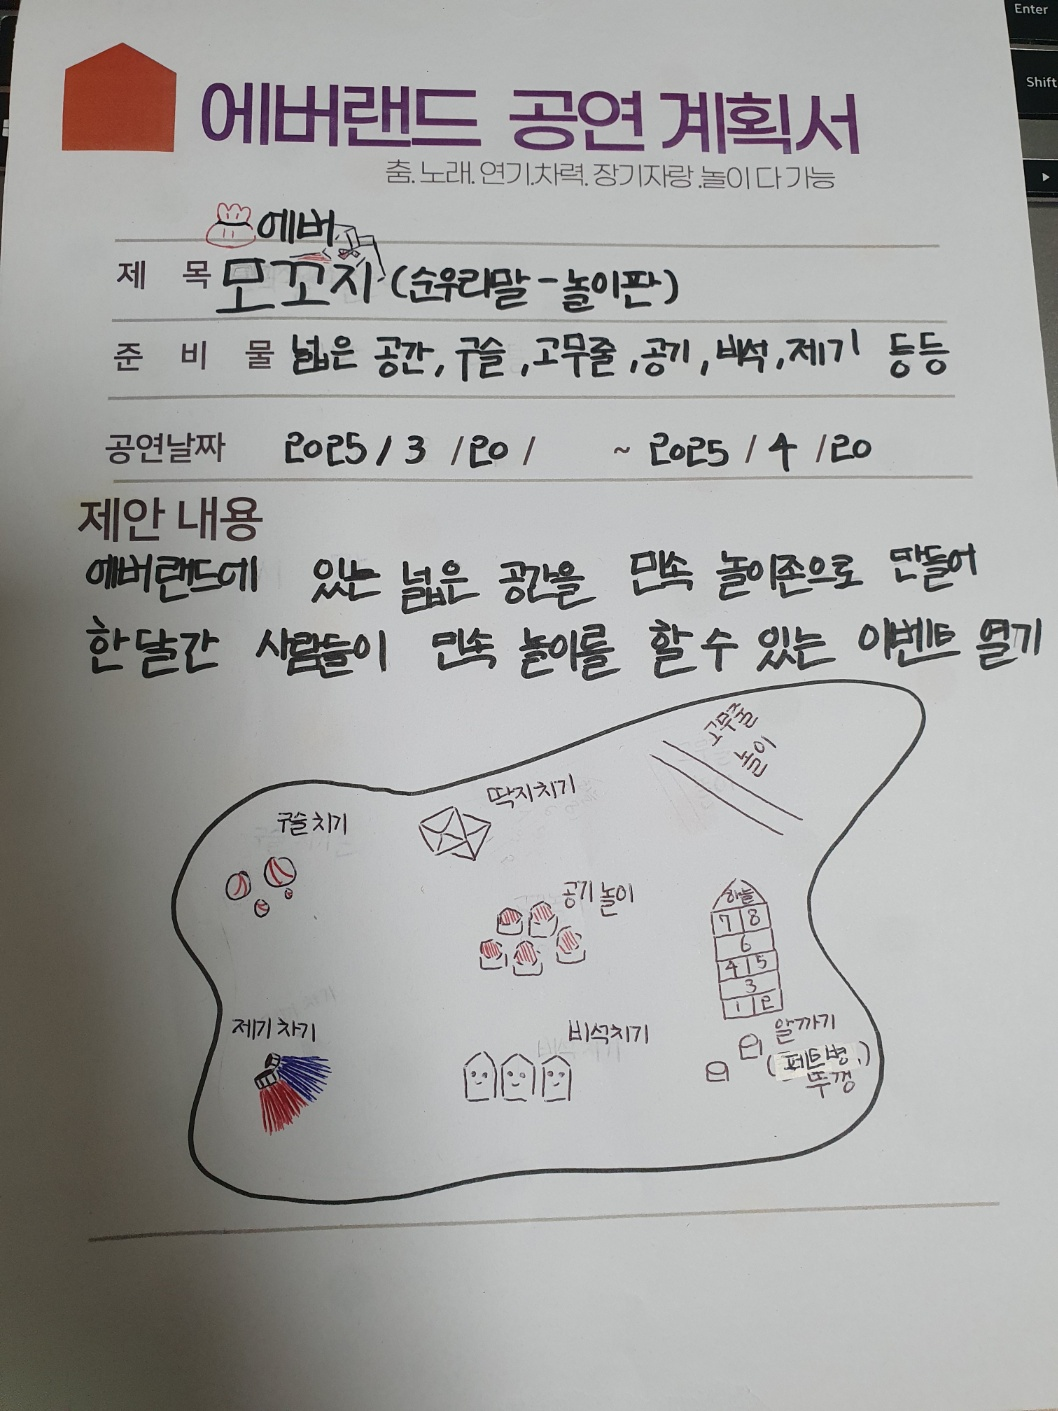 Enter
Shift
에버랜드 공연 계획서
춤.노래.연기.차력.장기자랑.놀이 다 가능
에버
제 목 모꼬지 (순우리말-놀이판)
준 비 물 넓은 공간, 구슬, 고무줄, 공기, 비석, 제기 등등
공연날짜 2025 / 3 /20 / ~ 2025 / 4 /20
제안 내용
에버랜드에 있는 넓은 공간을 민속 놀이존으로 만들어
한달간 사람들이 민속 놀이를 할 수 있는 이벤트 열기
고무줄
놀이
딱지치기
구슬 치기
공기 놀이
하늘
7 8
6
4 5
3
1 2
제기 차기
비석치기
알까기
(페트병)
뚜껑